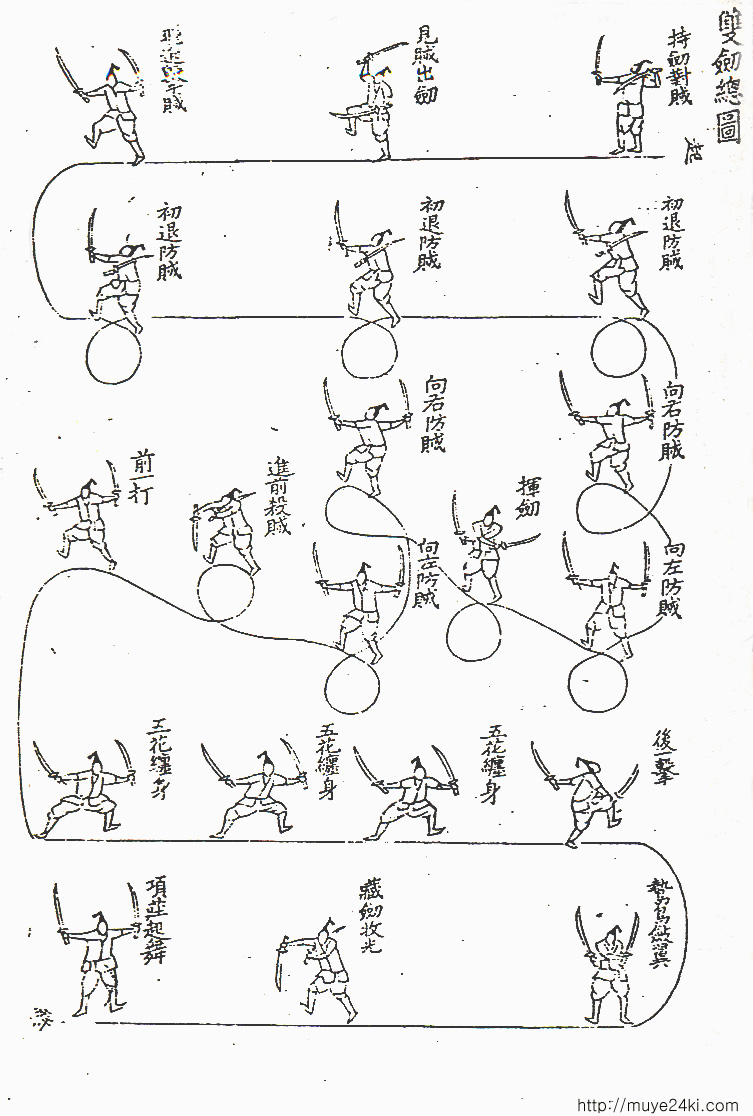 雙劒總圖
持劒對賊
見賊出劒
初退防賊
初退防賊
初退防賊
向右防賊
向左防賊
揮劒
向右防賊
向左防賊
進前殺賊
前一打
後一擊
五花纏身
五花纏身
五花纏身
鷙鳥斂翼
藏劒收光
項莊起舞
http://muye24ki.com